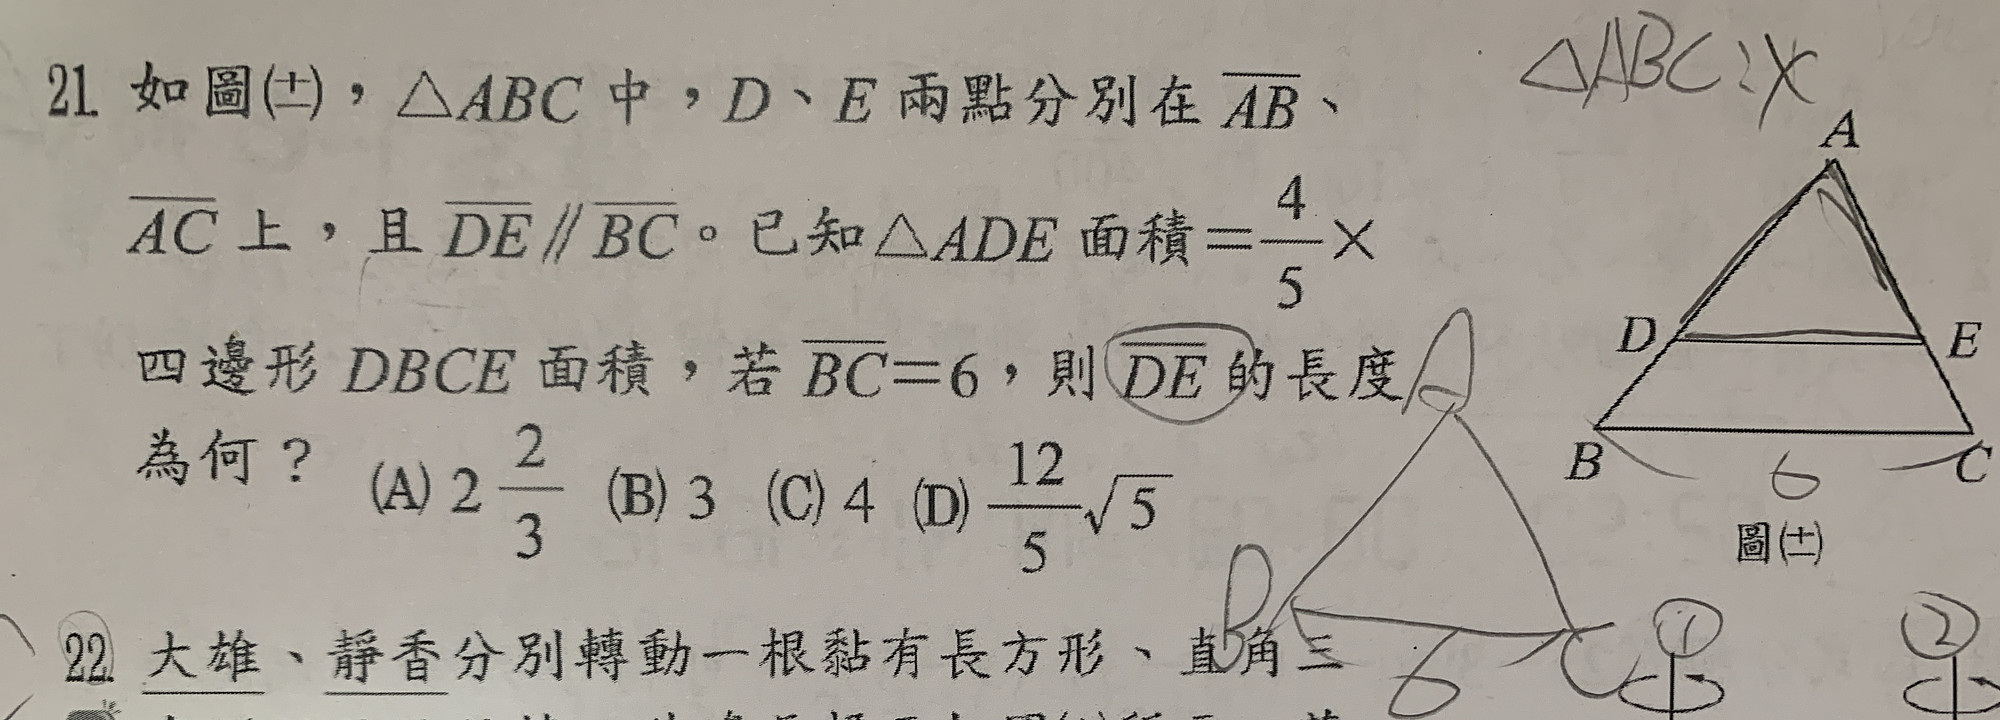 △ABC:x
21. 如圖(十一)，△ABC 中，D、E 兩點分別在 AB、
AC 上，且 DE // BC。已知△ADE 面積＝4/5×
四邊形 DBCE 面積，若 BC＝6，則 DE 的長度
為何？ (A) 2 2/3 (B) 3 (C) 4 (D) 12/5 √5
A
D
E
B
6
C
圖(十一)
A
B
6
C
22. 大雄、靜香分別轉動一根黏有長方形、直角三
①
②